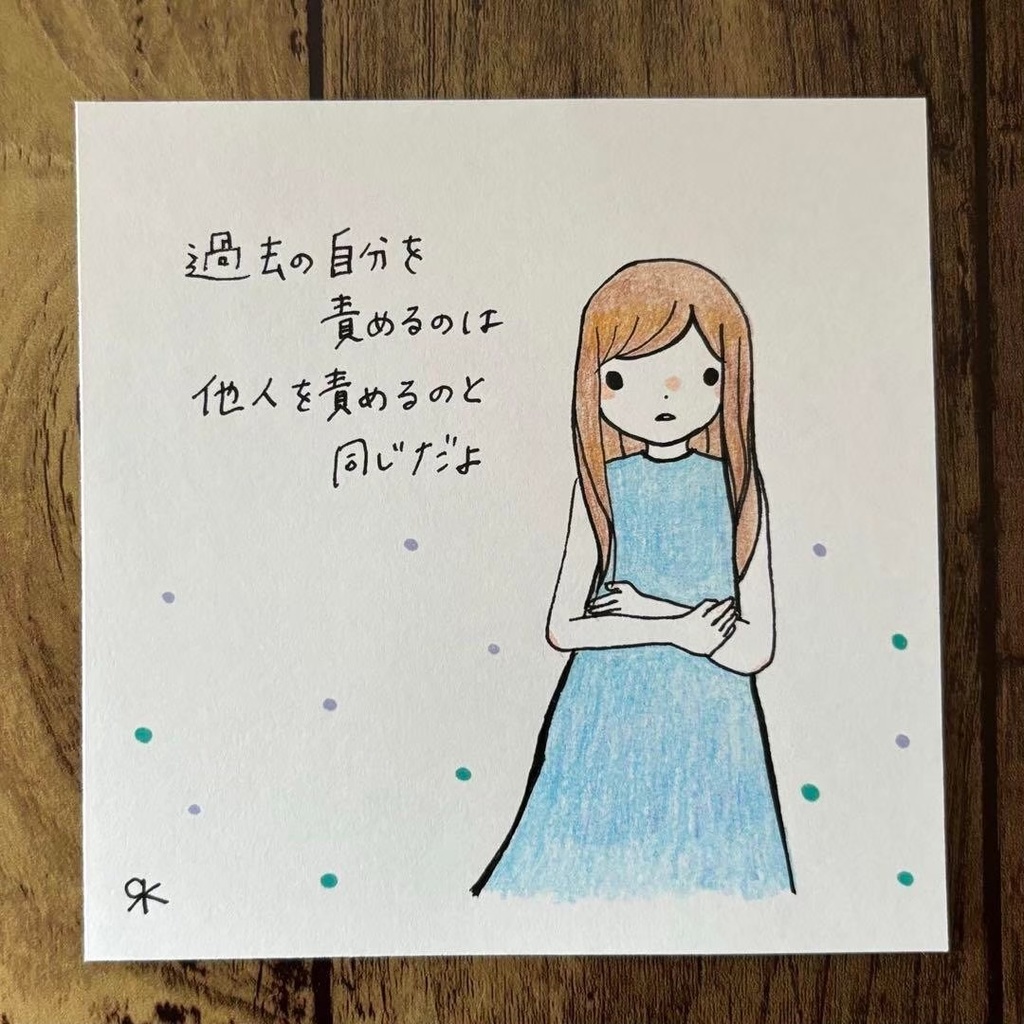 過去の自分を
責めるのは
他人を責めるのと
同じだよ